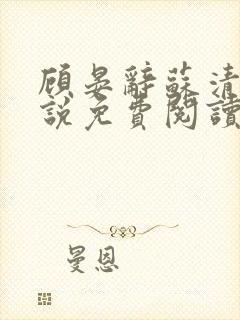 顾晏辭蘇清
說免費閱讀
曼恩